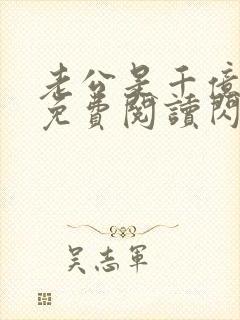 老公是千億
免費閱讀閃
吳志軍